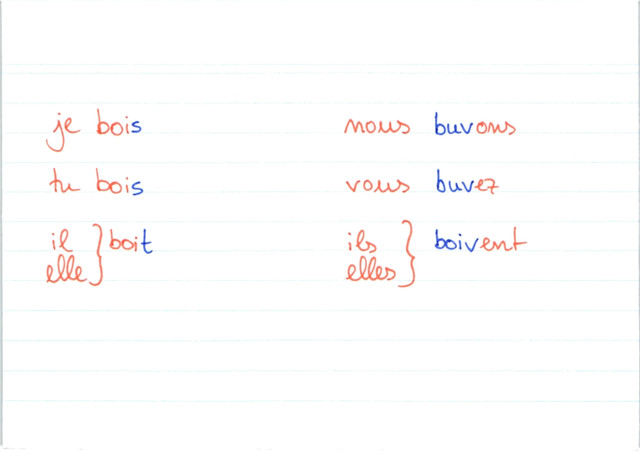 je bois
tu bois
il
elle } boit
nous buvons
vous buvez
ils
elles } boivent